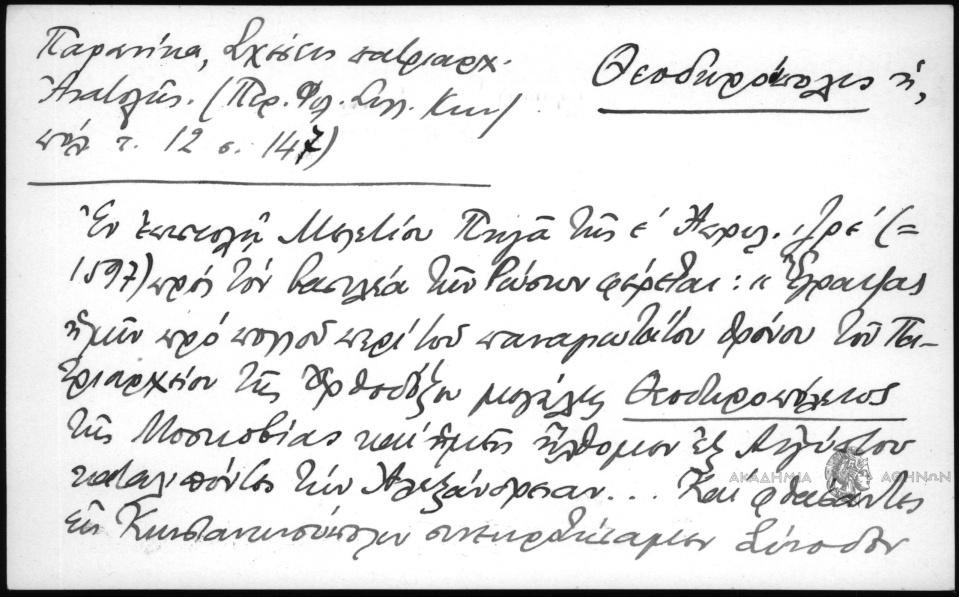 Παρανίκα, Σχέσεις πατριαρχ.
Ἀνατολῆς. (Περ. Φιλ. Συλ. Κων/
πόλ. τ. 12 σ. 147)
Θεοδωρόπολις ἡ,
Ἐν ἐπιστολῇ Μελετίου Πηγᾶ τῆς ε΄ Ἀπριλ. ͵ζρε΄ (=
1597) πρός τόν βασιλέα τῶν Ρώσων φέρεται: « Ἔγραψας
ἡμῖν πρό πολλοῦ περί τοῦ παναγιωτάτου θρόνου τοῦ Πα-
τριαρχείου τῆς Ὀρθοδόξου μεγάλης Θεοδωροπόλεως
τῆς Μοσκοβίας καί ἡμεῖς ἤλθομεν ἐξ Αἰγύπτου
καταλιπόντες τήν Ἀλεξάνδρειαν... Καί φθάσαντες
εἰς Κωνσταντινούπολιν συνεκροτήσαμεν Σύνοδον
ΑΚΑΔΗΜΙΑ ΑΘΗΝΩΝ